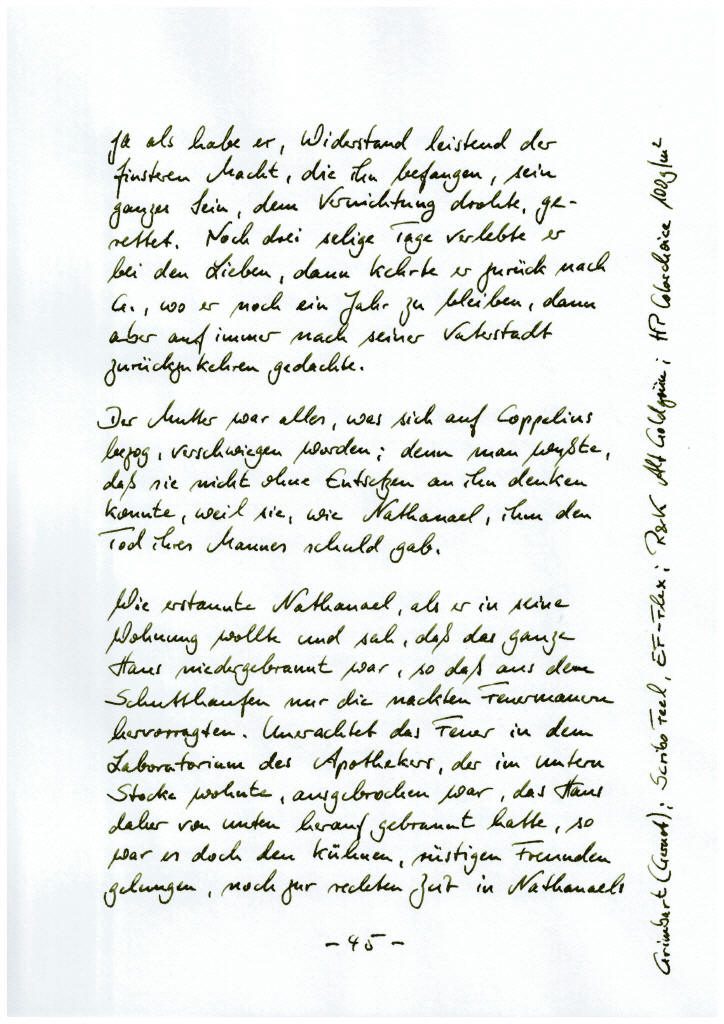 ja als habe er, Widerstand leistend der
finsteren Macht, die ihn befangen, sein
ganzes Sein, dem Vernichtung drohte, ge-
rettet. Noch drei selige Tage verlebte er
bei den Lieben, dann kehrte er zurück nach
G., wo er noch ein Jahr zu bleiben, dann
aber auf immer nach seiner Vaterstadt
zurückzukehren gedachte.
Der Mutter war alles, was sich auf Coppelius
bezog, verschwiegen worden; denn man wußte,
daß sie nicht ohne Entsetzen an ihn denken
konnte, weil sie, wie Nathanael, ihm den
Tod ihres Mannes schuld gab.
Wie erstaunte Nathanael, als er in seine
Wohnung wollte und sah, daß das ganze
Haus niedergebrannt war, so daß aus dem
Schutthaufen nur die nackten Feuermauern
hervorragten. Unerachtet das Feuer in dem
Laboratorium des Apothekers, der im untern
Stocke wohnte, ausgebrochen war, das Haus
daher von unten herauf gebrannt hatte, so
war es doch den kühnen, rüstigen Freunden
gelungen, noch zur rechten Zeit in Nathanaels
- 45 -
Grimbart (Gernot); Scribo Feel, EF-Flex; R&K Alt Goldgrün; HP Colorchoice 100g/m²